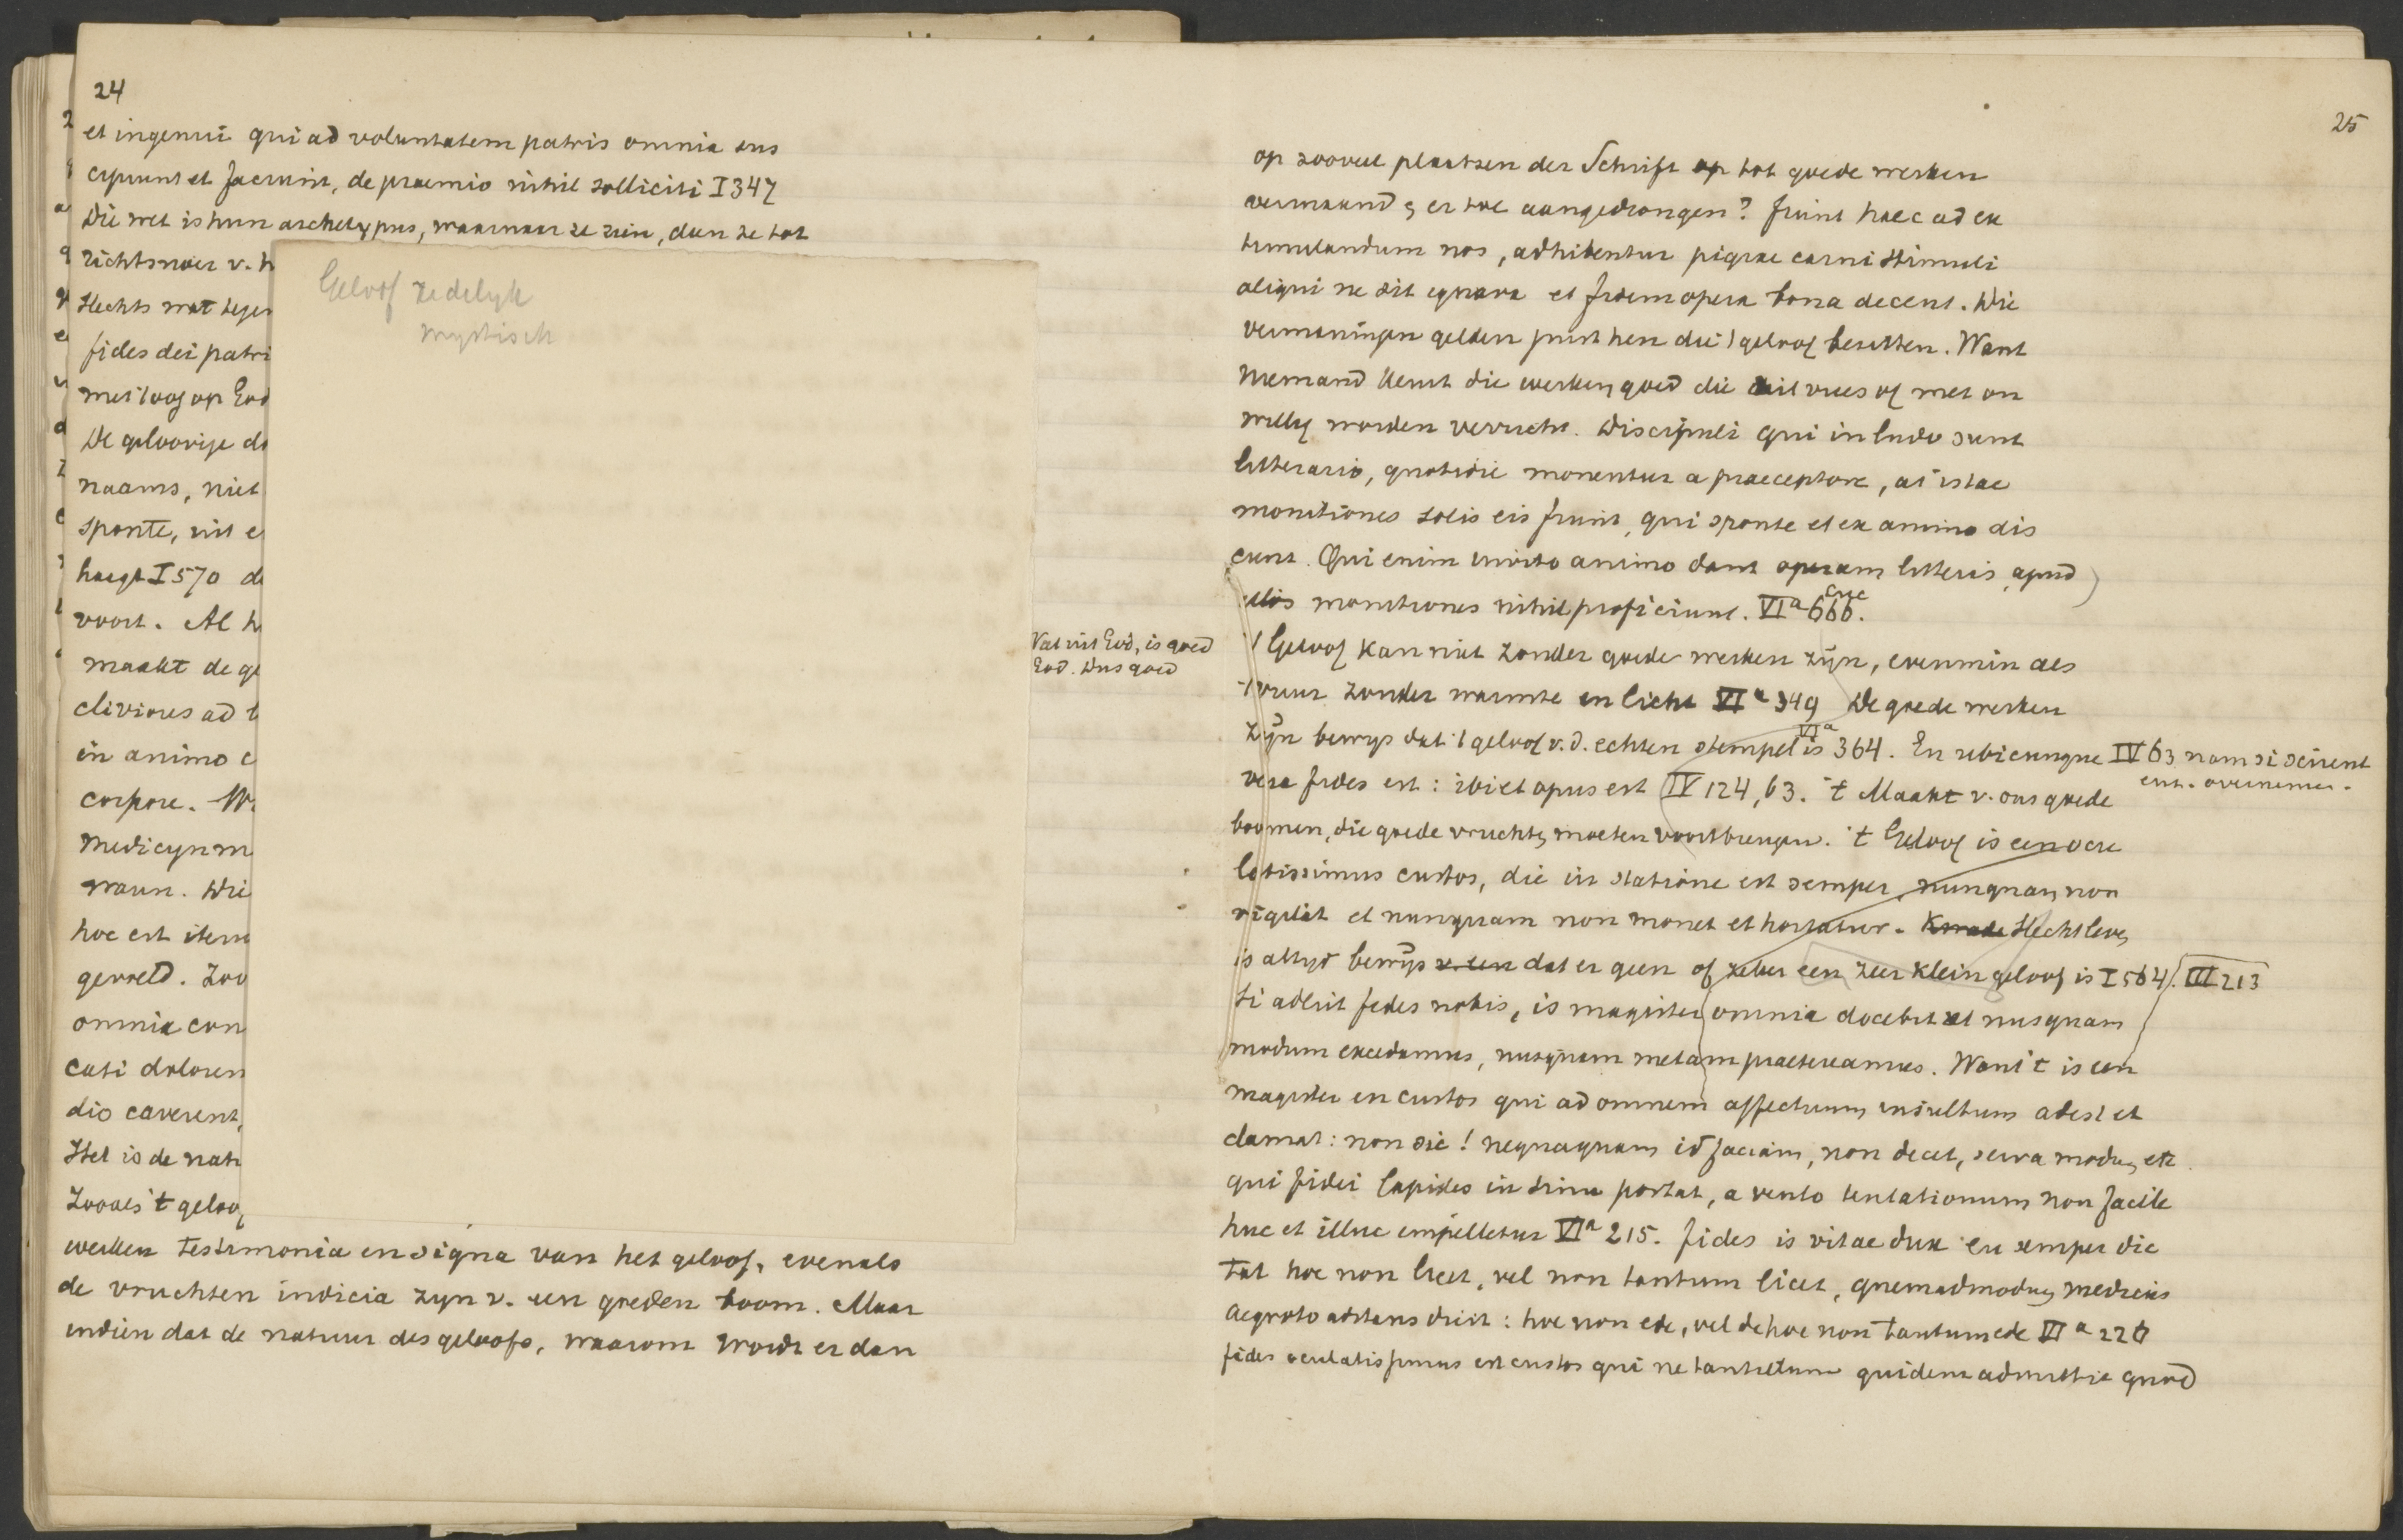 24
et ingenui qui ad voluntatem patris omnia sus
cipiunt et faciunt, de praemio nihil solliciti I 347
Die wet is hun archetypus, waarnaar ze zien, dan ze tot
richtsnoer v. h
slechts wat tegen
fides dei patri
met 't oog op God
De geloovige do
naams, niet
sponte, uit e
haegt I 570 de
voort. Al h
maakt de ge
cliviores ad b
in animo c
corpore. W
medicyn m
waun. Die
hoc est item
geweld. Zoo
omnia con
cati dolorem
dio caverent,
Het is de nat
Zooals 't geloof
werken testimonia en signa van het geloof, evenals
de vruchten indicia zyn v. een goeden boom. Maar
indien dat de natuur des geloofs, waarom wordt er dan
Geloof zedelyk
mystisch
Wat uit God, is goed
God. Dus goed
25
op zooveel plaatsen der Schrift op tot goede werken
vermaand & er toe aangedrongen? fiunt haec ad ex
timulandum nos, adhibentur pigrae carni stimuli
aliqui ne sit ignava et fidem opera bona decent. Die
vermaningen gelden juist hen die 't geloof bezitten. Want
niemand keurt die werken goed die uit vrees of met on
willig worden verricht. Discipuli qui in ludo sunt
litterario, quotidie monentur a praeceptore, at istae
monitiones solis eis fiunt, qui sponte et ex animo dis
cunt. Qui enim invito animo dant operam litteris, apud
illos monitiones nihil proficiunt. VIa 666.
't Geloof kan niet zonder goede werken zijn, evenmin als
't vuur zonder warmte en licht VIa 349 De goede werken
zijn bewys dat 't geloof v. d. echten stempel is VIa 364. En ubicunque IV 63 nam si scirent
vera fides est: ibi et opus est IV 124, 63. 't Maakt v. ons goede
boomen, die goede vruchten moeten voortbrengen. 't Geloof is een ocu
latissimus custos, die in statione est semper, nunquam non
vigilat et nunquam non monet et hortatur. Kwade Slecht leven
is altyd bewijs v. een dat er geen of zeker een zeer klein geloof is I 564. III 213
Si adsit fides nobis, is magister omnia docebit ut nusquam
modum excedamus, nusquam metam praetereamus. Want 't is een
magister en custos qui ad omnem affectuum insultum adest et
clamat: non sic! nequaquam id faciam, non decet, serva modum, etc
qui fidei lapides in sinu portat, a vento tentationum non facile
huc et illuc impelletur VIa 215. fides is vitae dux en semper dic
tat hoc non licet, vel non tantum licet, quemadmodum medicus
aegroto adstans dicit: hoc non ede, vel de hoc non tantum ede VIa 226
fides oculatissimus est custos qui ne tantillum quidem admittit quod